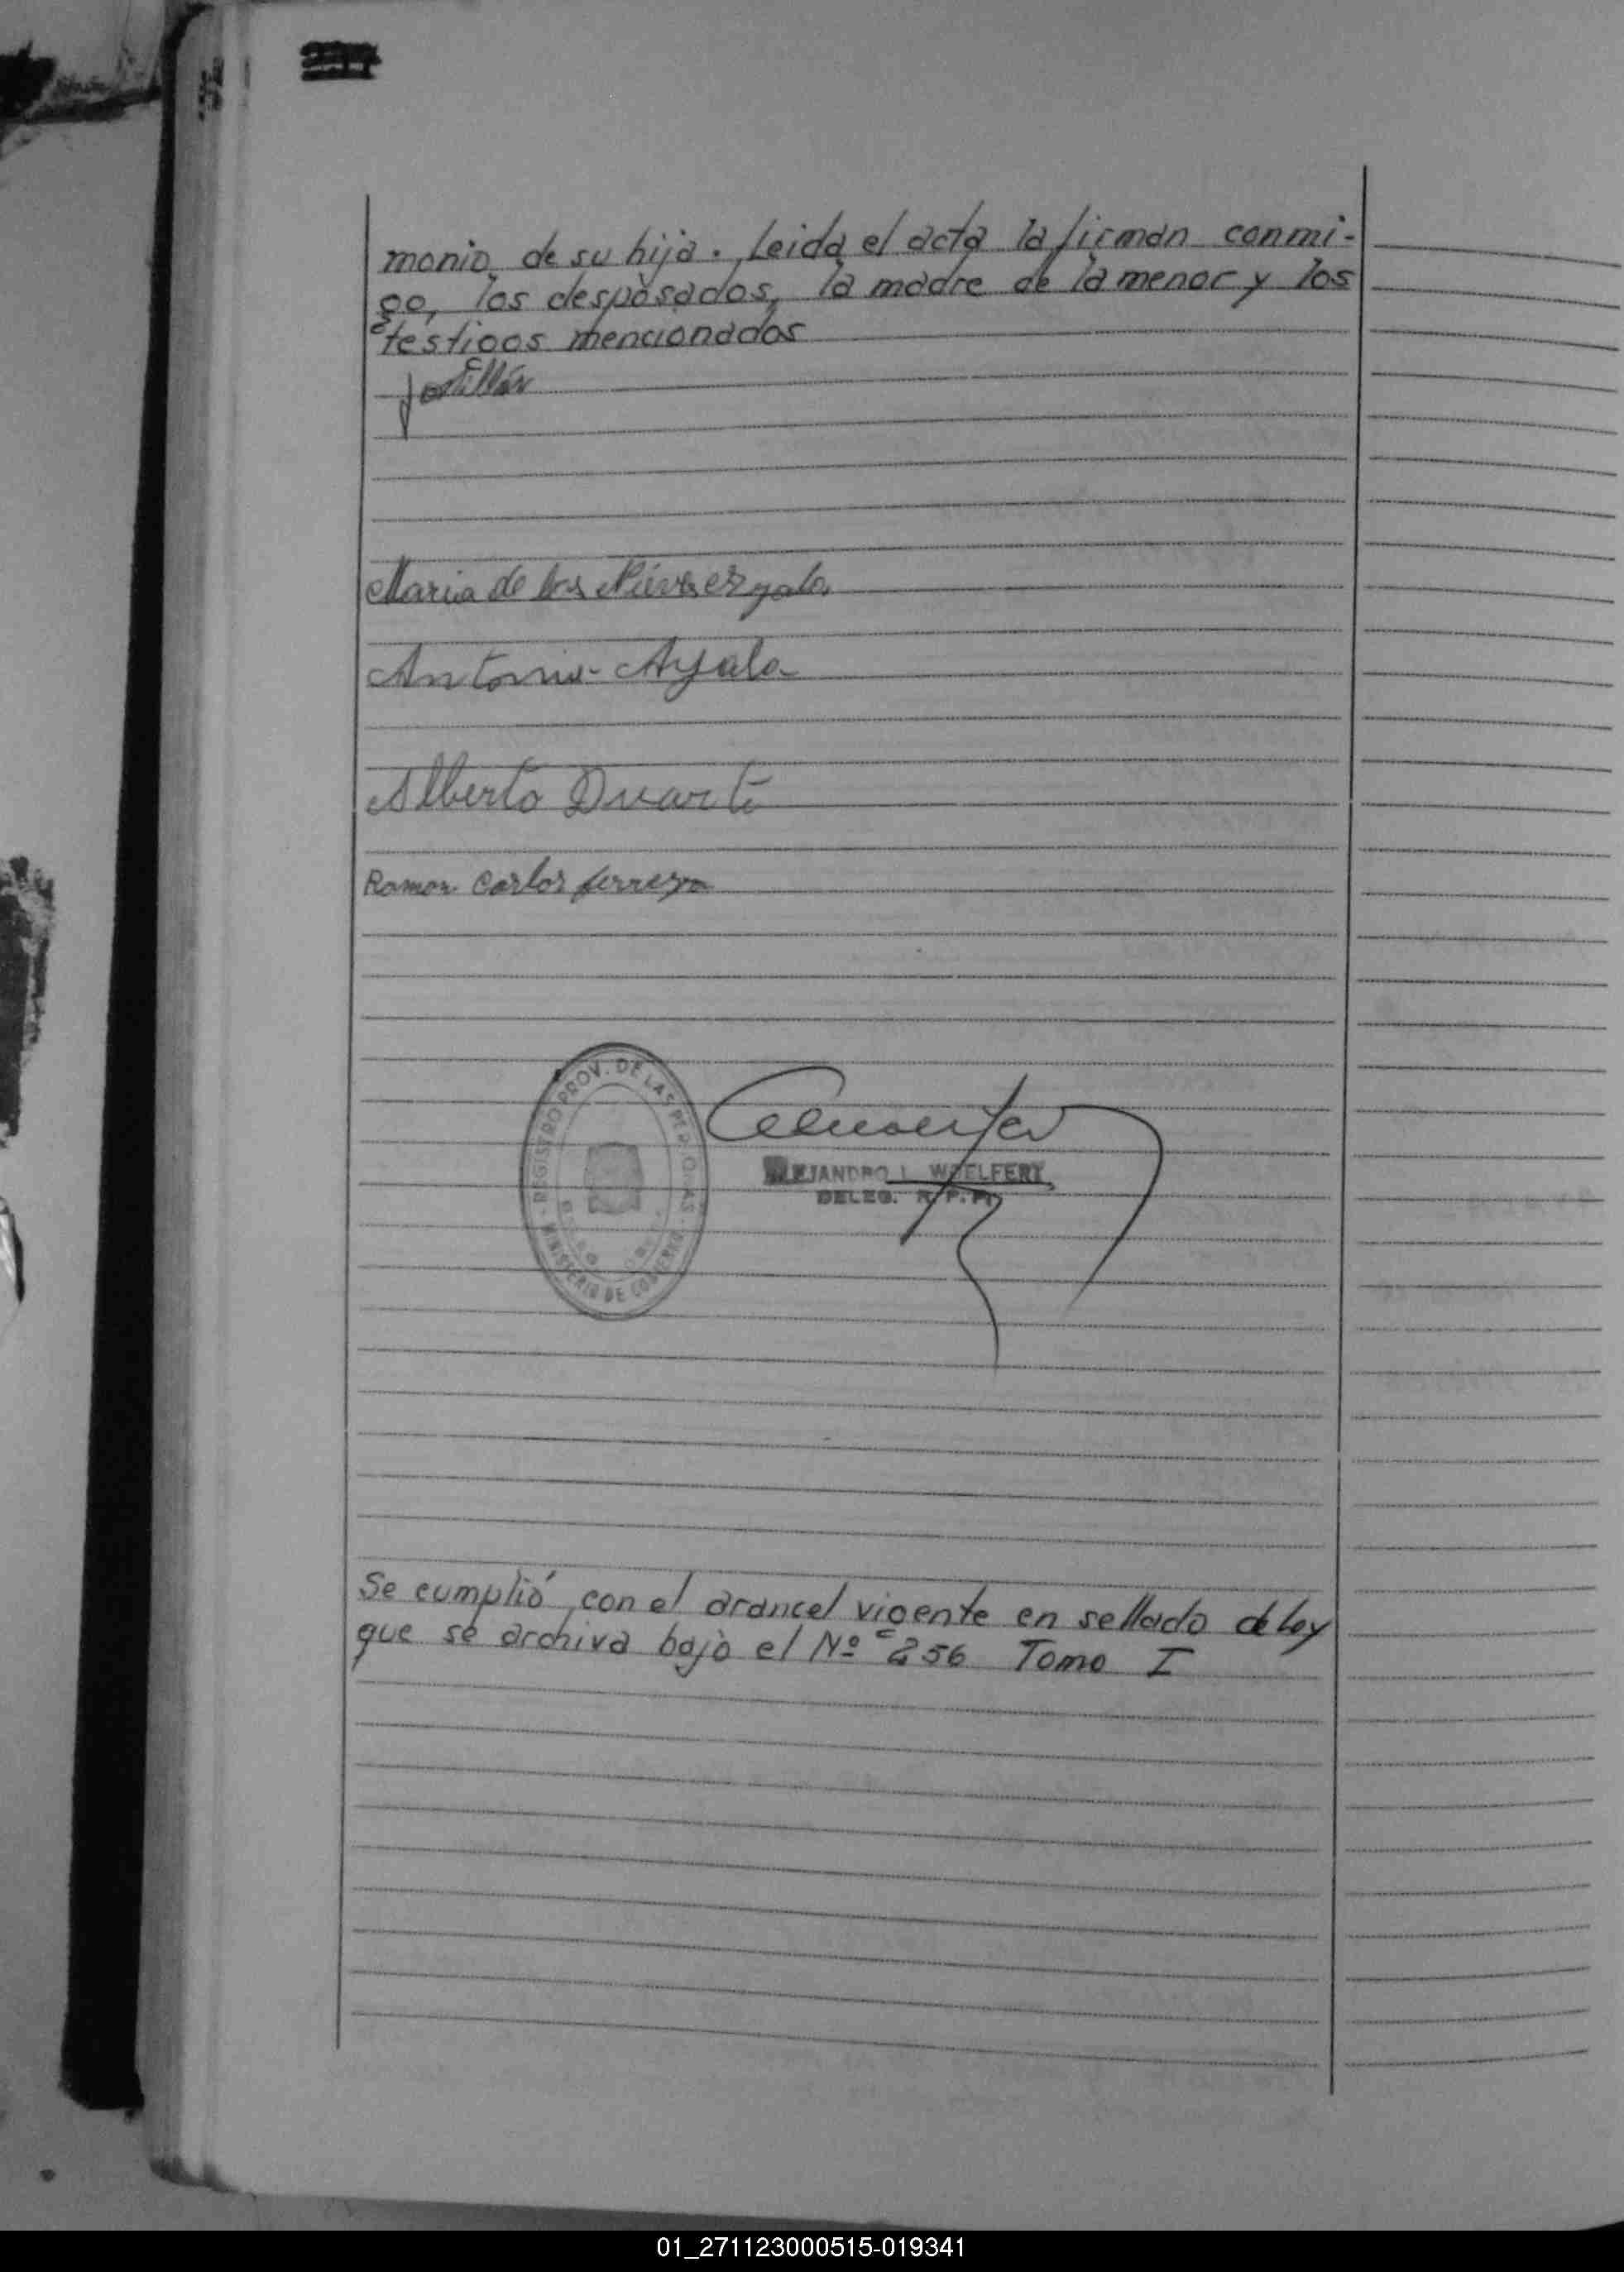 monio de su hija. Leida el acta la firman conmi-
go, los desposados, la madre de la menor y los
testigos mencionados
Maria de las Nieves
Antonio Ayala
Alberto Duarte
Ramon Carlos ferreyra
REGISTRO PROV. DE LAS PERSONAS
MINISTERIO DE GOBIERNO
ALEJANDRO L. WOELFERT
DELEG. R. P. P.
Se cumplió con el arancel vigente en sellado de Ley
que se archiva bajo el Nº 256 Tomo I
01_271123000515-019341